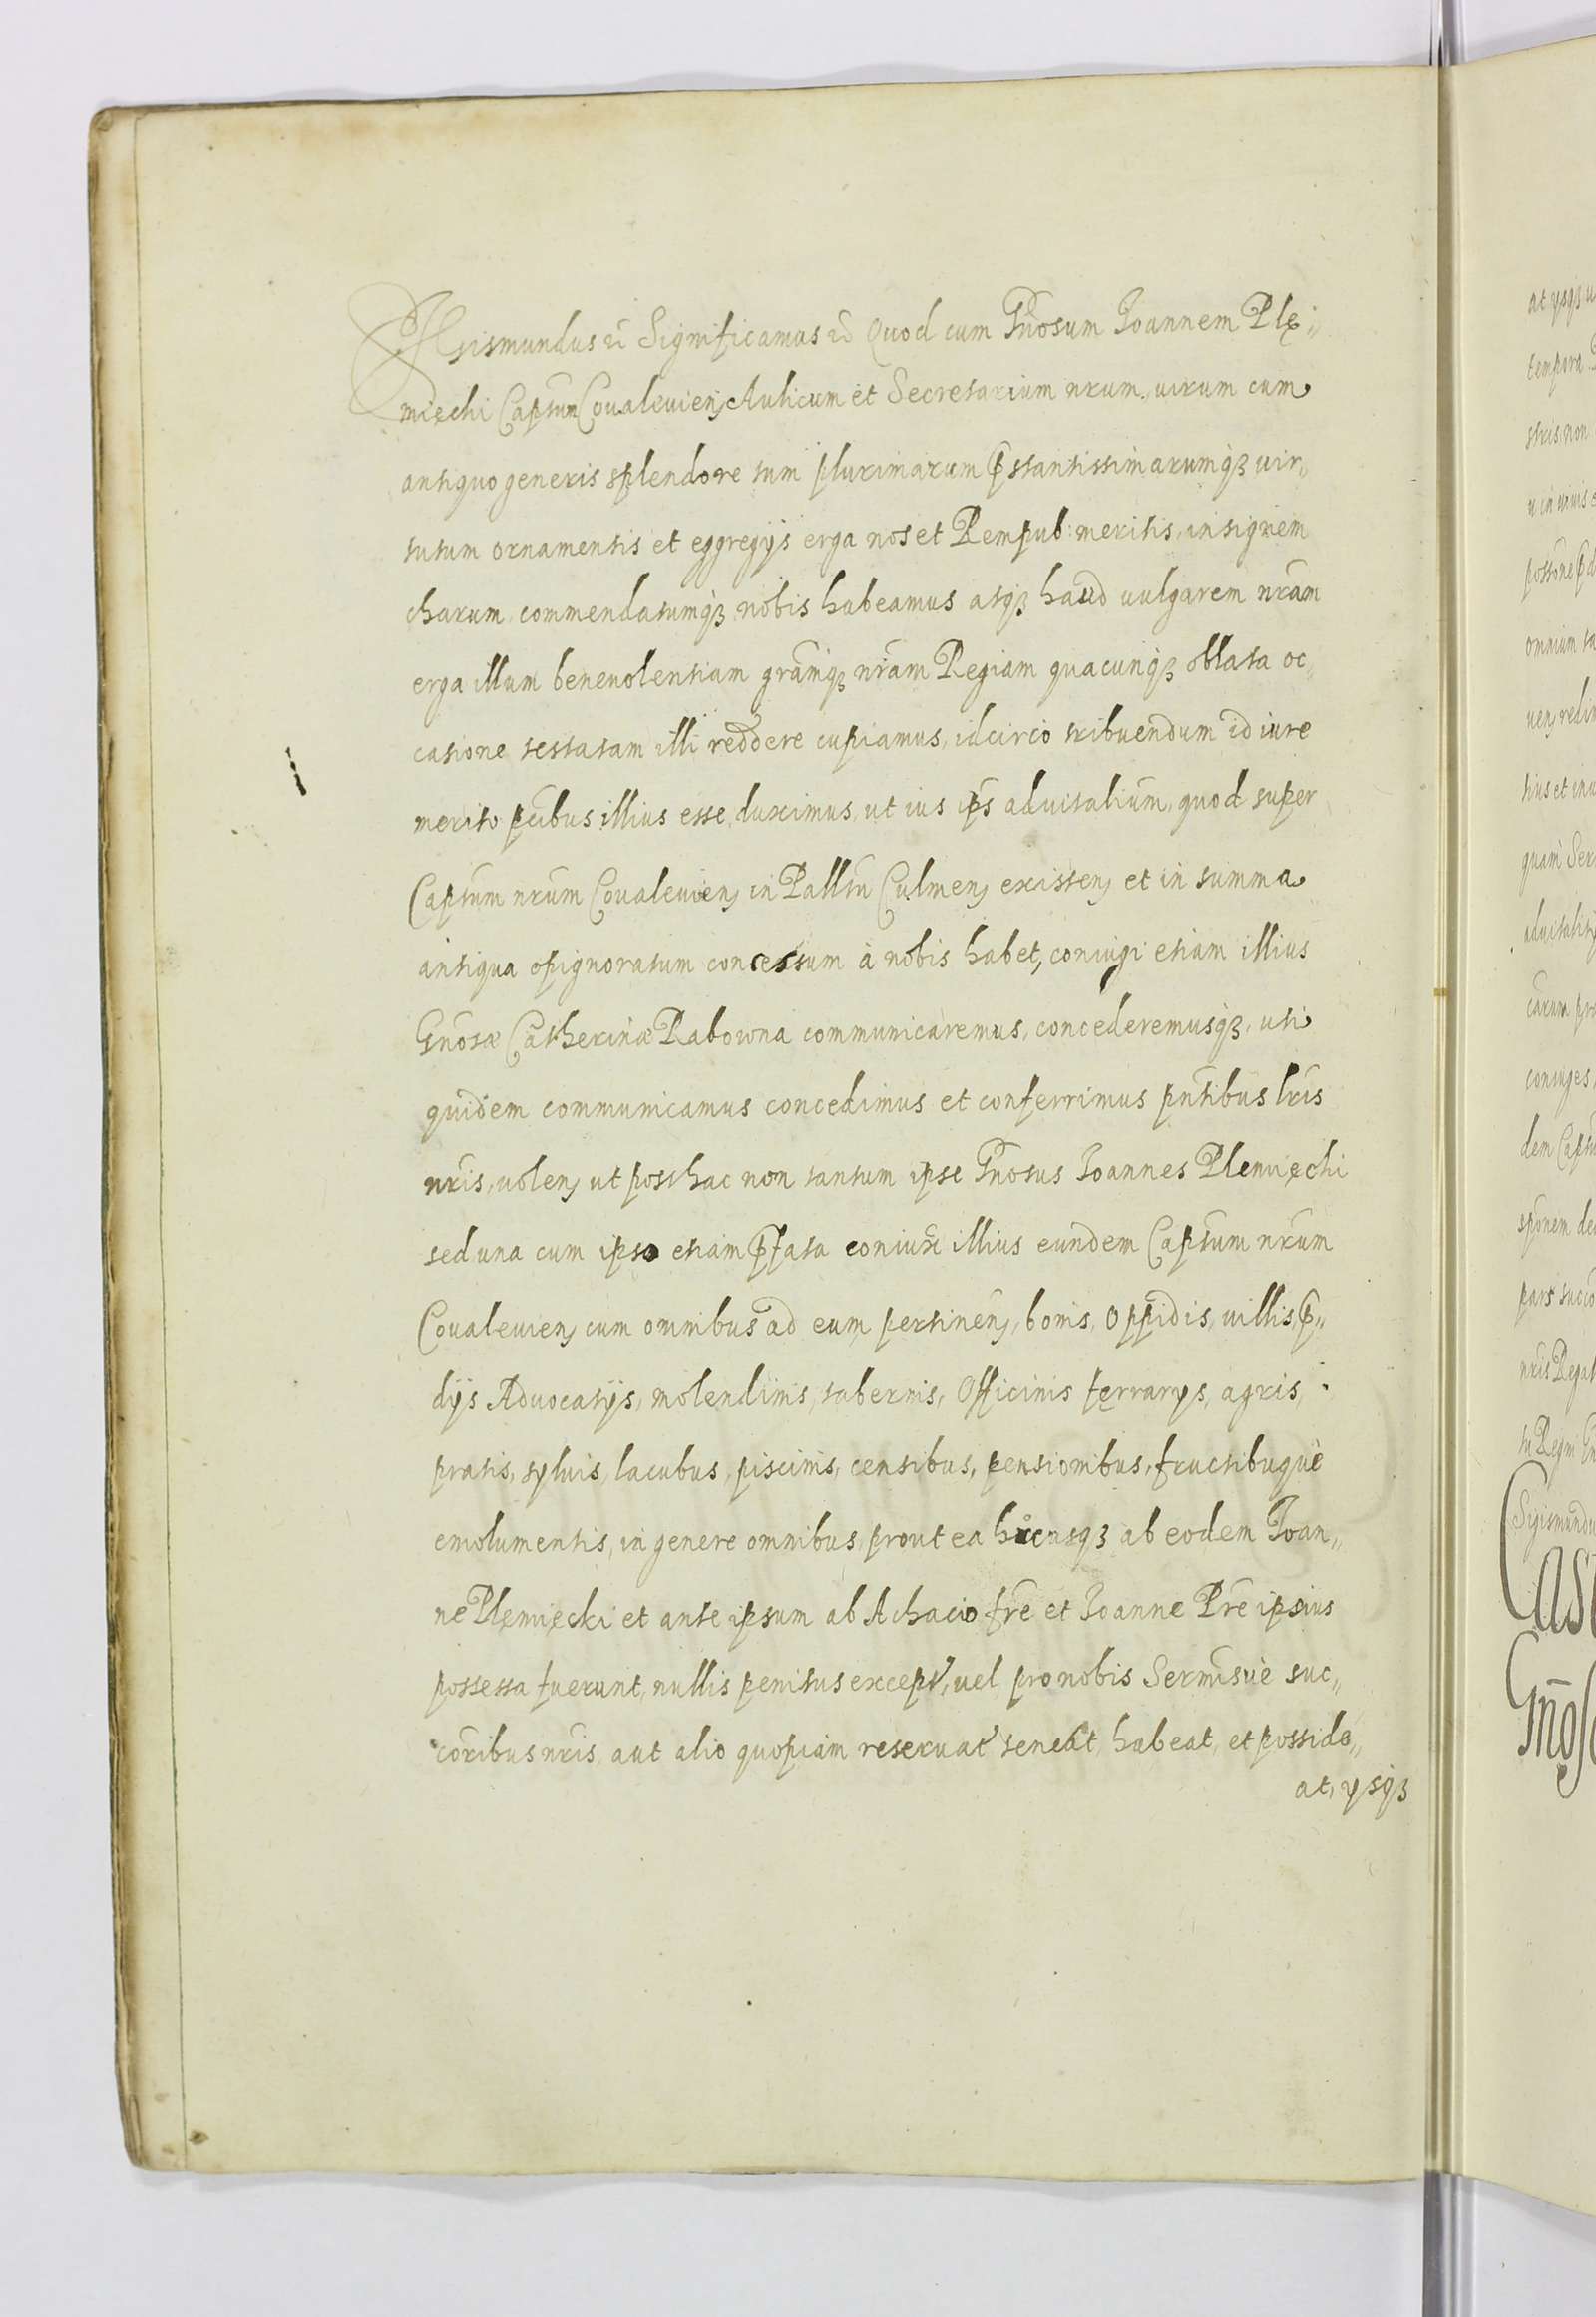 Sigismundus etc Significamus etc Quod cum Gnōsum Joannem Plę„
mięchi Captum Covaleviens Aulicum et Secretarium nrum, virum cum
antiquo generis splendore tum plurimarum pstantissimarumq̃ vir„
tutum ornamentis et eggregijs erga nos et Rempub: meritis, insignem
charum commendatumq̃ nobis habeamus atq̃ haud vulgarem nrãm
erga illum benevolentiam grãmq̃ nrãm Regiam quacunq̃ oblata oc„
casione testatam illi reddere cupiamus, idcirco tribuendum id iure
merito pcibus illius esse duximus, ut ius ips advitalium, quod super
Captum nrum Covaleviens in Palltu Culmens existens et in summa
antiqua opignoratum concessum à nobis habet, coniugi etiam illius
Gnosæ Catherinæ Rabowna communicaremus, concederemusq̃, uti
quidem communicamus concedimus et conferrimus pntibus lris
nris, volens ut posthac non tantum ipse Gnosus Joannes Plemięchi
sed una cum ipso etiam pfata coniux illius eundem Captum nrum
Covaleviens cum omnibus ad eum pertinens, bonis, oppidis, villis p„
dijs Advocatijs, molendinis, tabernis, Officinis ferrarys, agris,
pratis, sylvis, lacubus, piscinis, censibus, pensionibus, fructibuquè
emolumentis, in genere omnibus, prout ea hucusq̃ ab eodem Joan„
ne Plęmięcki et ante ipsum ab Achacio fre et Joanne Pre ipsius
possessa fuerunt, nullis penitus except, vel pro nobis Sermisvè suc„
coribus nris, aut alio quopiam reservat teneat, habeat, et posside„
at, ysq̃